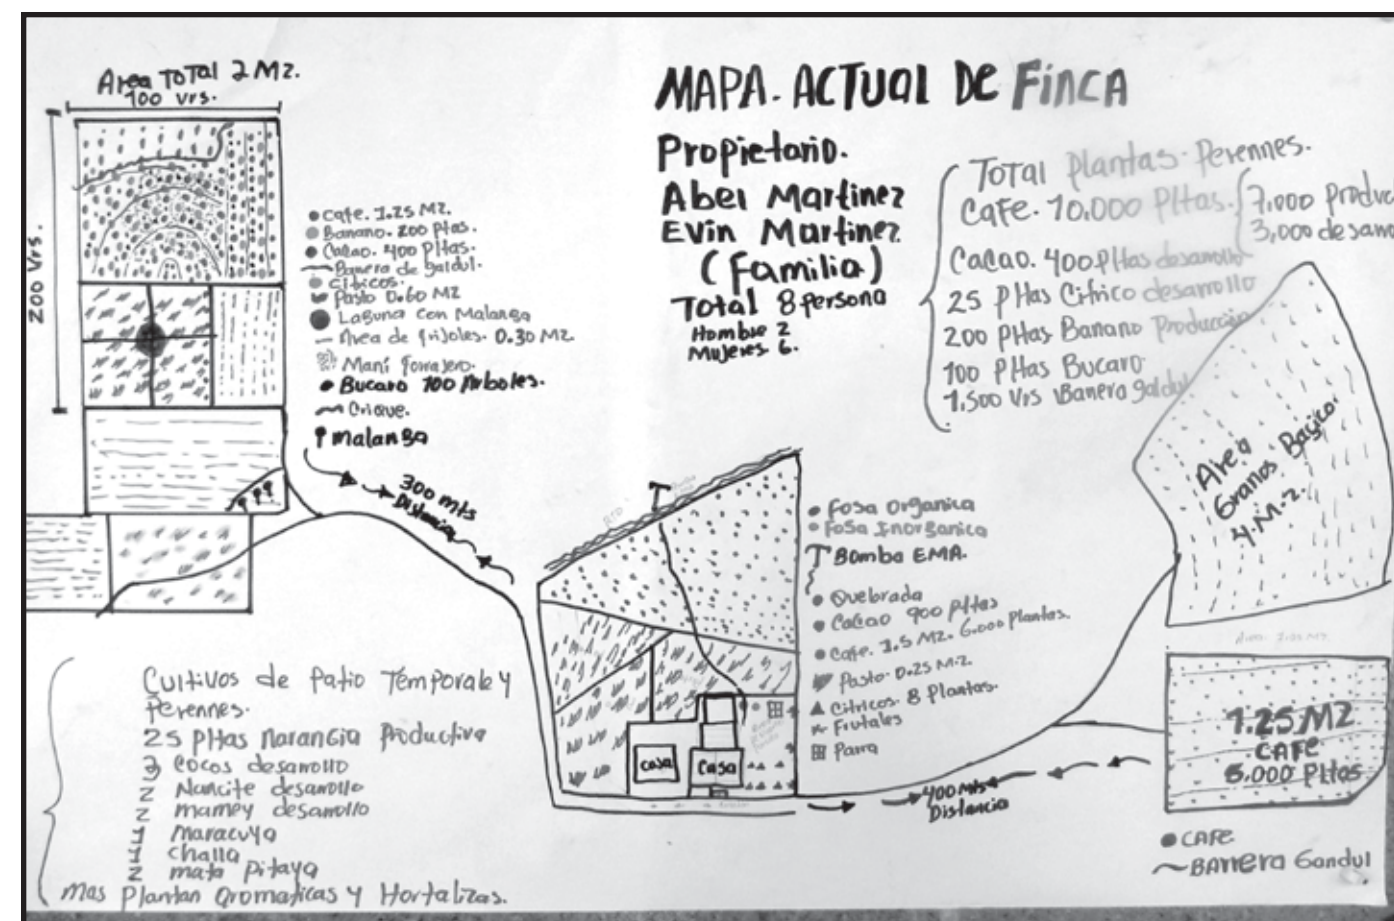 Area Total 2 Mz.
100 Vrs.
200 Vrs.
MAPA. ACTUAL DE FINCA
Propietario.
Abel Martinez
Evin Martinez
(Familia)
Total 8 persona
Hombre 2
Mujeres 6.
Total Plantas Perennes.
Cafe. 10.000 Pltas.
7.000 Produc
3,000 desarro
Cacao. 400 Pltas desarrollo
25 Pltas Citrico desarrollo
200 Pltas Banano Producción
100 Pltas Bucaro
1,500 Vrs Barrera gandul
Cafe. 1.25 MZ.
Banano. 200 Ptas.
Cacao. 400 Pltas.
Barrera de gandul.
Citricos.
Pasto 0.60 MZ
Laguna con Malanga
Area de frijoles. 0.30 MZ.
Maní forrajero.
Bucaro 100 Arboles.
Crique.
Malanga
300 mts
Distancia
RIO
Fosa Organica
Fosa Inorganica
Bomba EMA.
Quebrada
Cacao 900 Pltas
Cafe. 1.5 MZ. 6.000 Plantas.
Pasto 0.25 MZ.
Citricos. 8 Plantas.
Frutales
Parra
casa
Casa
400 Mts
Distancia
Area
Granos Basico.
4.M.z.
1.25 MZ
CAFE
5.000 Pltas
CAFE
BARRERA Gandul
Cultivos de Patio Temporale y
Perennes.
25 Pltas Narangia Productiva
3 Cocos desarrollo
2 Nancite desarrollo
2 mamey desarrollo
1 Maracuya
1 challa
2 mata Pitaya
mas Plantan Aromaticas y Hortalizas.